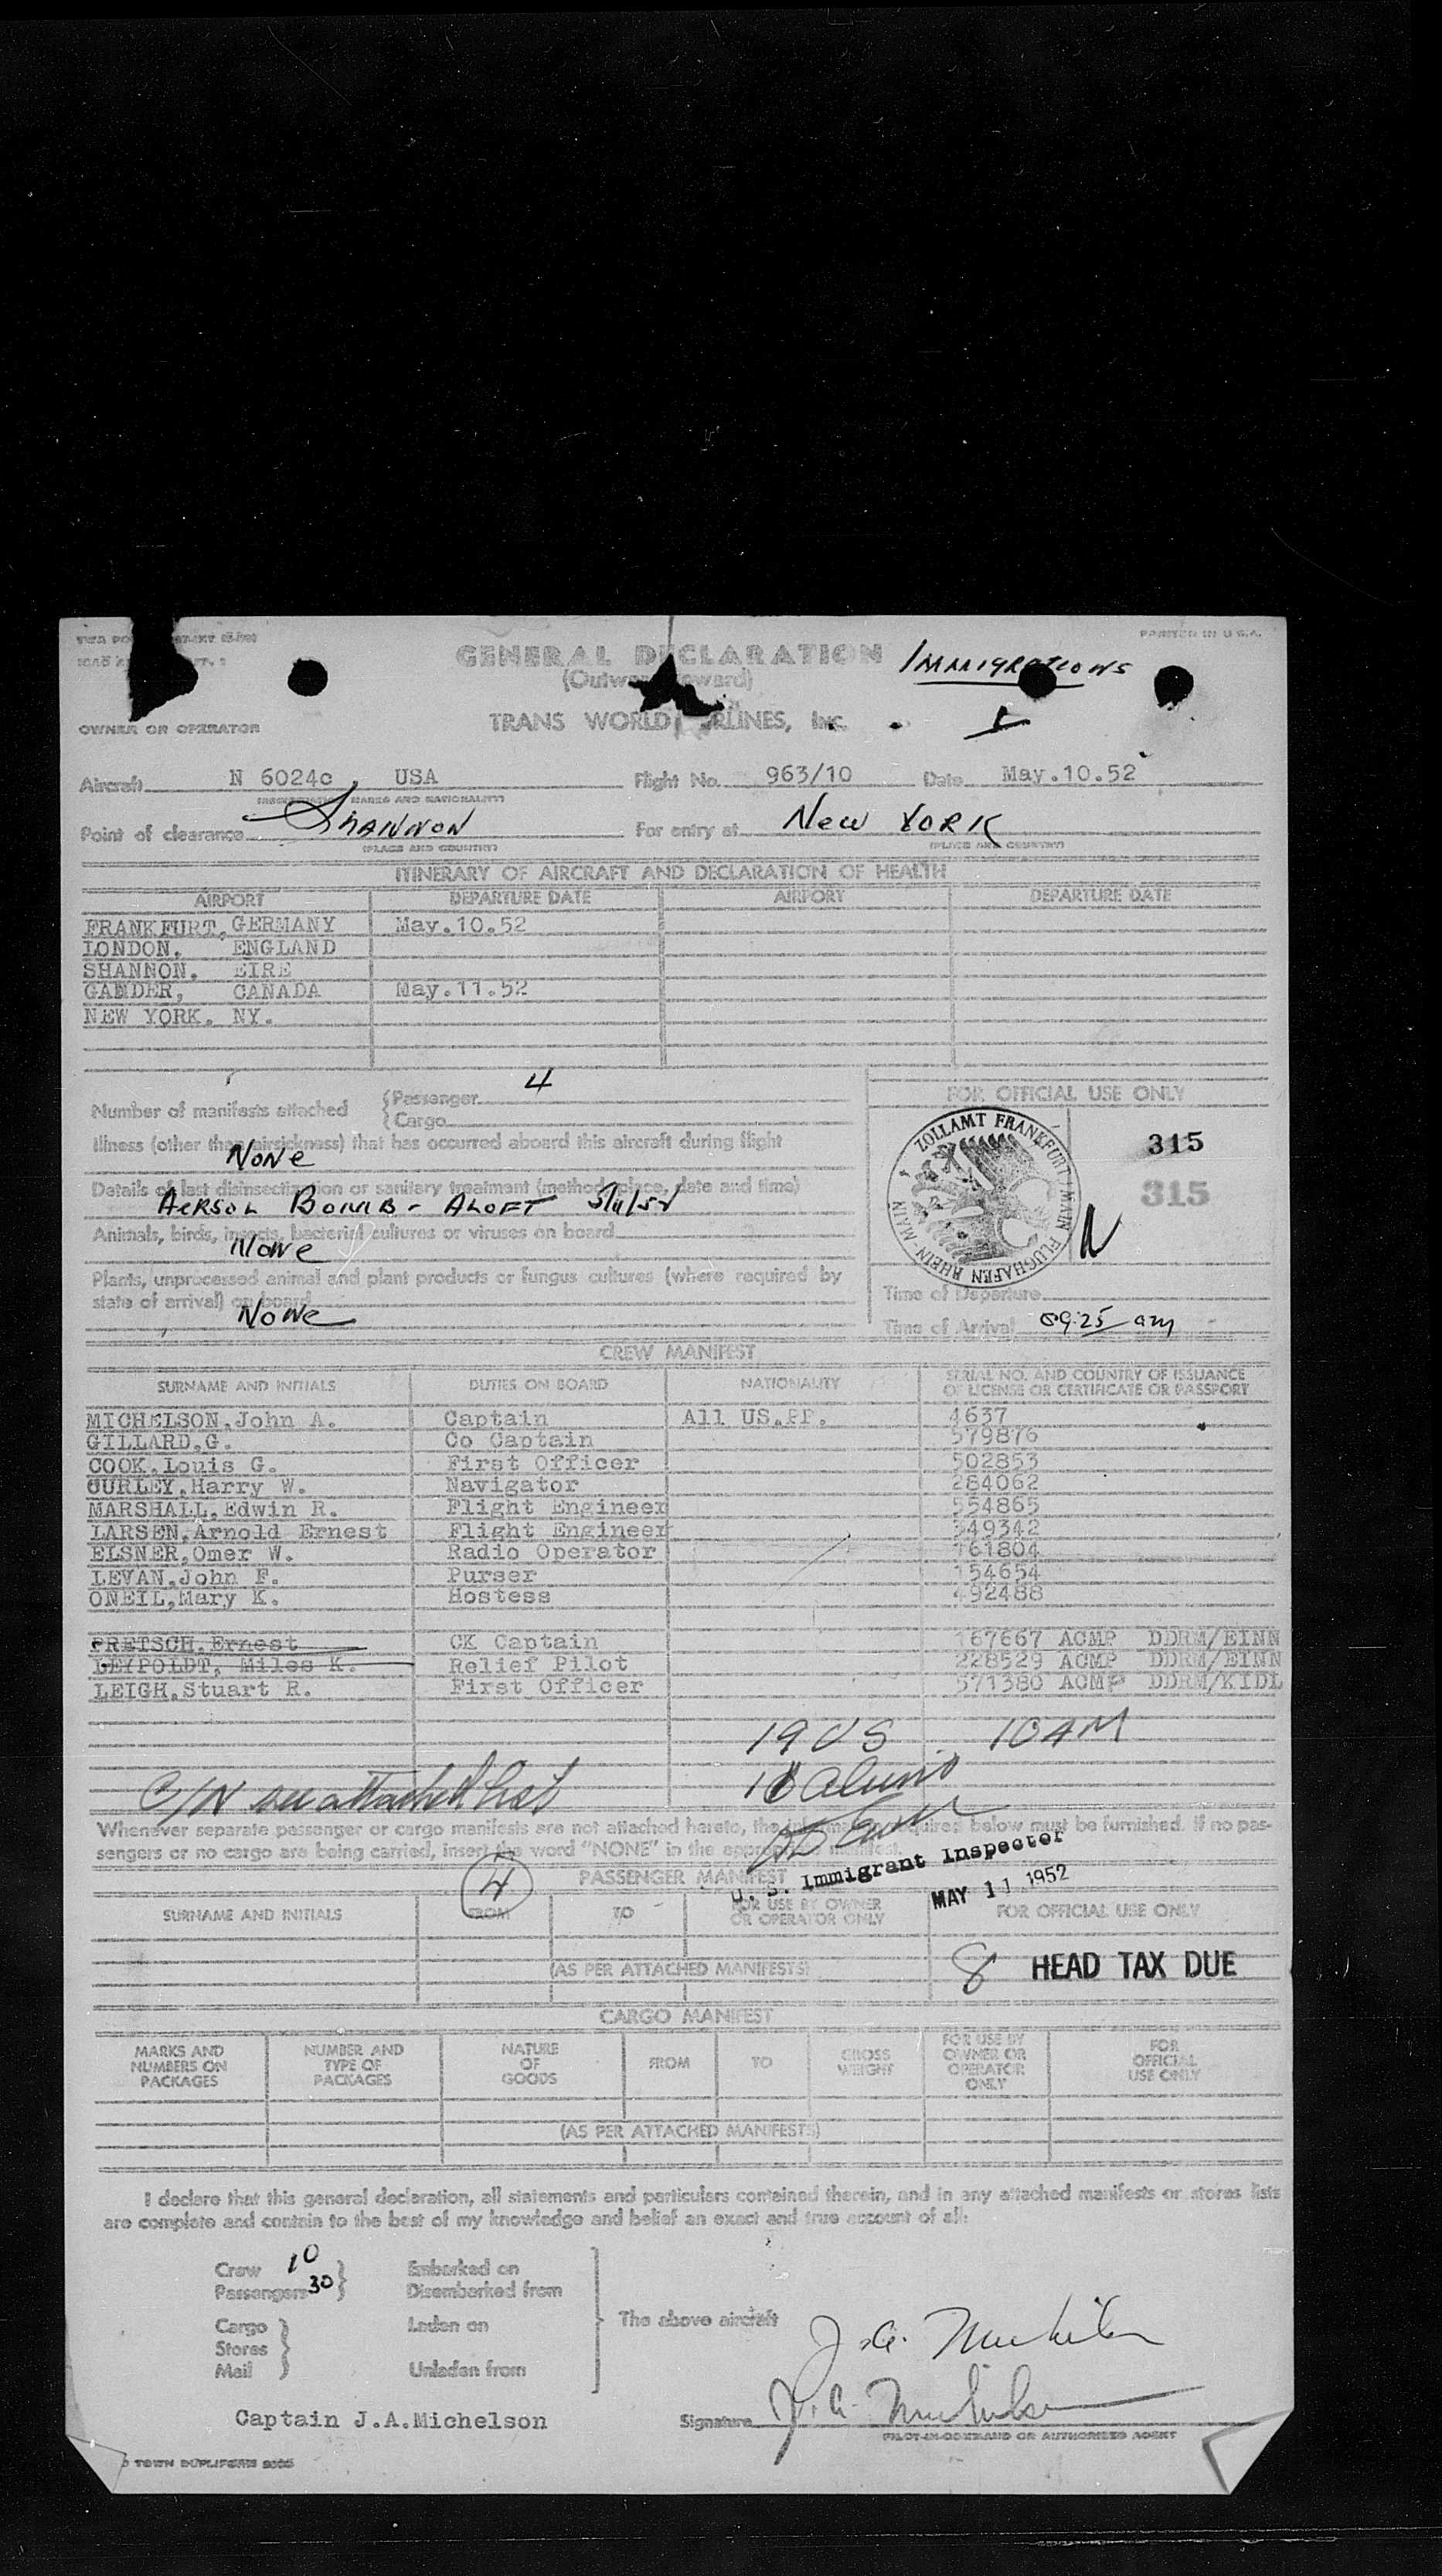 PRINTED IN U.S.A.
GENERAL DECLARATION
IMMIGRATIONS
TRANS WORLD
Inc.
OWNER OR OPERATOR
Aircraft N 6024c , USA Flight No. 963/10 Date May.10.52
MARKS AND NATIONALITY)
Point of clearance SHANNON For entry at New YORK
(PLACE AND COUNTRY) (PLACE AND COUNTRY)
ITINERARY OF AIRCRAFT AND DECLARATION OF HEALTH
AIRPORT DEPARTURE DATE AIRPORT DEPARTURE DATE
FRANKFURT, GERMANY May.10.52
LONDON, ENGLAND
SHANNON, EIRE
GANDER, CANADA May.11.52
NEW YORK. NY.
Number of manifests attached {Passenger 4
{Cargo
FOR OFFICIAL USE ONLY
Illness (other than airsickness) that has occurred aboard this aircraft during flight
None
Details of last disinsectization or sanitary treatment (method, place, date and time)
AERSOL BOMB - ALOFT 5/11/52
Animals, birds, insects, bacterial cultures or viruses on board
None
Plants, unprocessed animal and plant products or fungus cultures (where required by
state of arrival) on board
None
ZOLLAMT FRANKFURT/MAIN FLUGHAFEN RHEIN-MAIN
315
315
Time of Departure
Time of Arrival 09:25 am
CREW MANIFEST
SURNAME AND INITIALS DUTIES ON BOARD NATIONALITY SERIAL NO. AND COUNTRY OF ISSUANCE
OF LICENSE OR CERTIFICATE OR PASSPORT
MICHELSON,John A. Captain All US.PP. 4637
GILLARD,G. Co Captain 579876
COOK,Louis G. First Officer 502853
GURLEY,Harry W. Navigator 284062
MARSHALL,Edwin R. Flight Engineer 554865
LARSEN,Arnold Ernest Flight Engineer 349342
ELSNER,Omer W. Radio Operator 161804
LEVAN,John F. Purser 154654
ONEIL,Mary K. Hostess 492488
PRETSCH,Ernest CK Captain 167667 ACMP DDRM/EINN
LEYPOLDT, Miles K. Relief Pilot 228529 ACMP DDRM/EINN
LEIGH,Stuart R. First Officer 571380 ACMP DDRM/KIDL
19 US 10 AM
C/N see attached list
Whenever separate passenger or cargo manifests are not attached hereto, the information required below must be furnished. If no pas-
sengers or no cargo are being carried, insert the word "NONE" in the appropriate manifest.
U. S. Immigrant Inspector
MAY 11 1952
4
PASSENGER MANIFEST
SURNAME AND INITIALS FROM TO FOR USE BY OWNER
OR OPERATOR ONLY FOR OFFICIAL USE ONLY
(AS PER ATTACHED MANIFESTS)
8 HEAD TAX DUE
CARGO MANIFEST
MARKS AND
NUMBERS ON
PACKAGES
NUMBER AND
TYPE OF
PACKAGES
NATURE
OF
GOODS
FROM
TO
GROSS
WEIGHT
FOR USE BY
OWNER OR
OPERATOR
ONLY
FOR
OFFICIAL
USE ONLY
(AS PER ATTACHED MANIFESTS)
I declare that this general declaration, all statements and particulars contained therein, and in any attached manifests or stores lists
are complete and contain to the best of my knowledge and belief an exact and true account of all:
Crew 10 Embarked on
Passengers 30 Disembarked from
Cargo Laden on
Stores
Mail Unladen from
The above aircraft
Captain J.A.Michelson
Signature
PILOT-IN-COMMAND OR AUTHORIZED AGENT
TOWN DUPLIFORMS